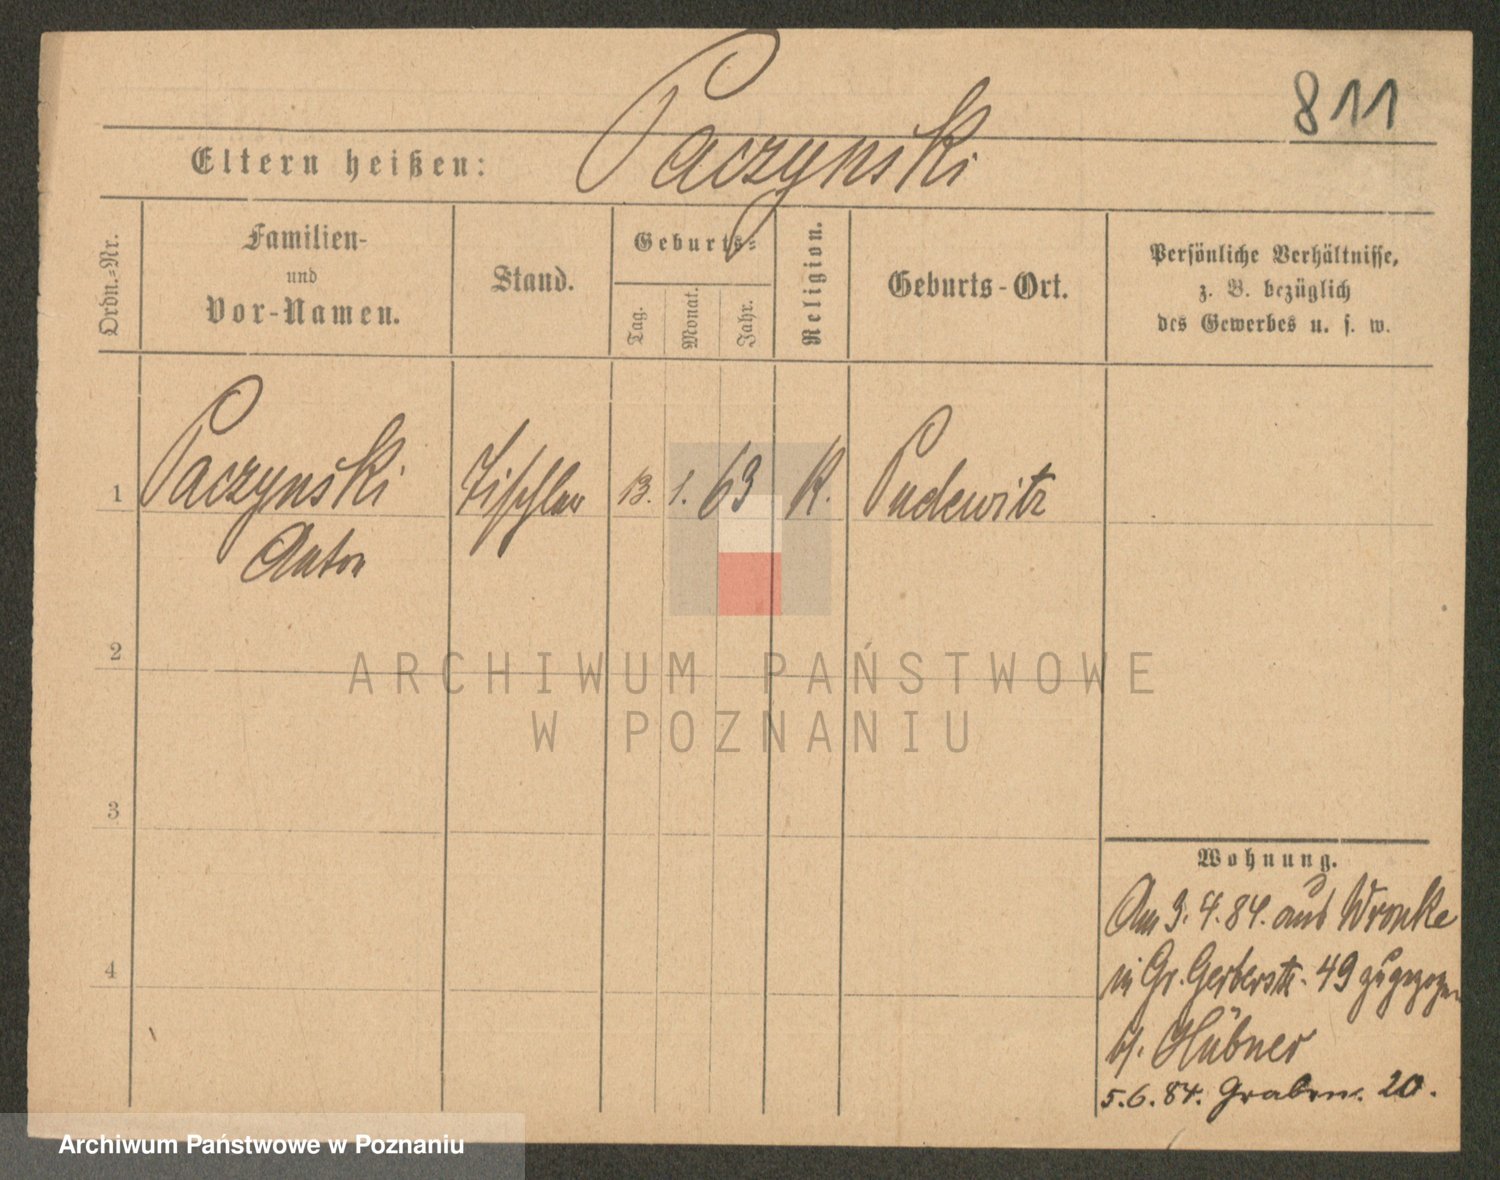 811
Eltern heißen: Paczynski
Ordn.=Nr.
Familien-
und
Vor-Namen.
Stand.
Geburts=
Tag.
Monat.
Jahr.
Religion.
Geburts-Ort.
Persönliche Verhältnisse,
z. B. bezüglich
des Gewerbes u. s. w.
1 Paczynski Tischler 13. 1. 63 K. Pudewitz
Anton
2
3
4
Wohnung.
Am 3.4.84. aus Wronke
in Gr. Gerberstr. 49 zugezogen
b/. Hübner
5.6.84. Graben. 20.
ARCHIWUM PAŃSTWOWE
W POZNANIU
Archiwum Państwowe w Poznaniu